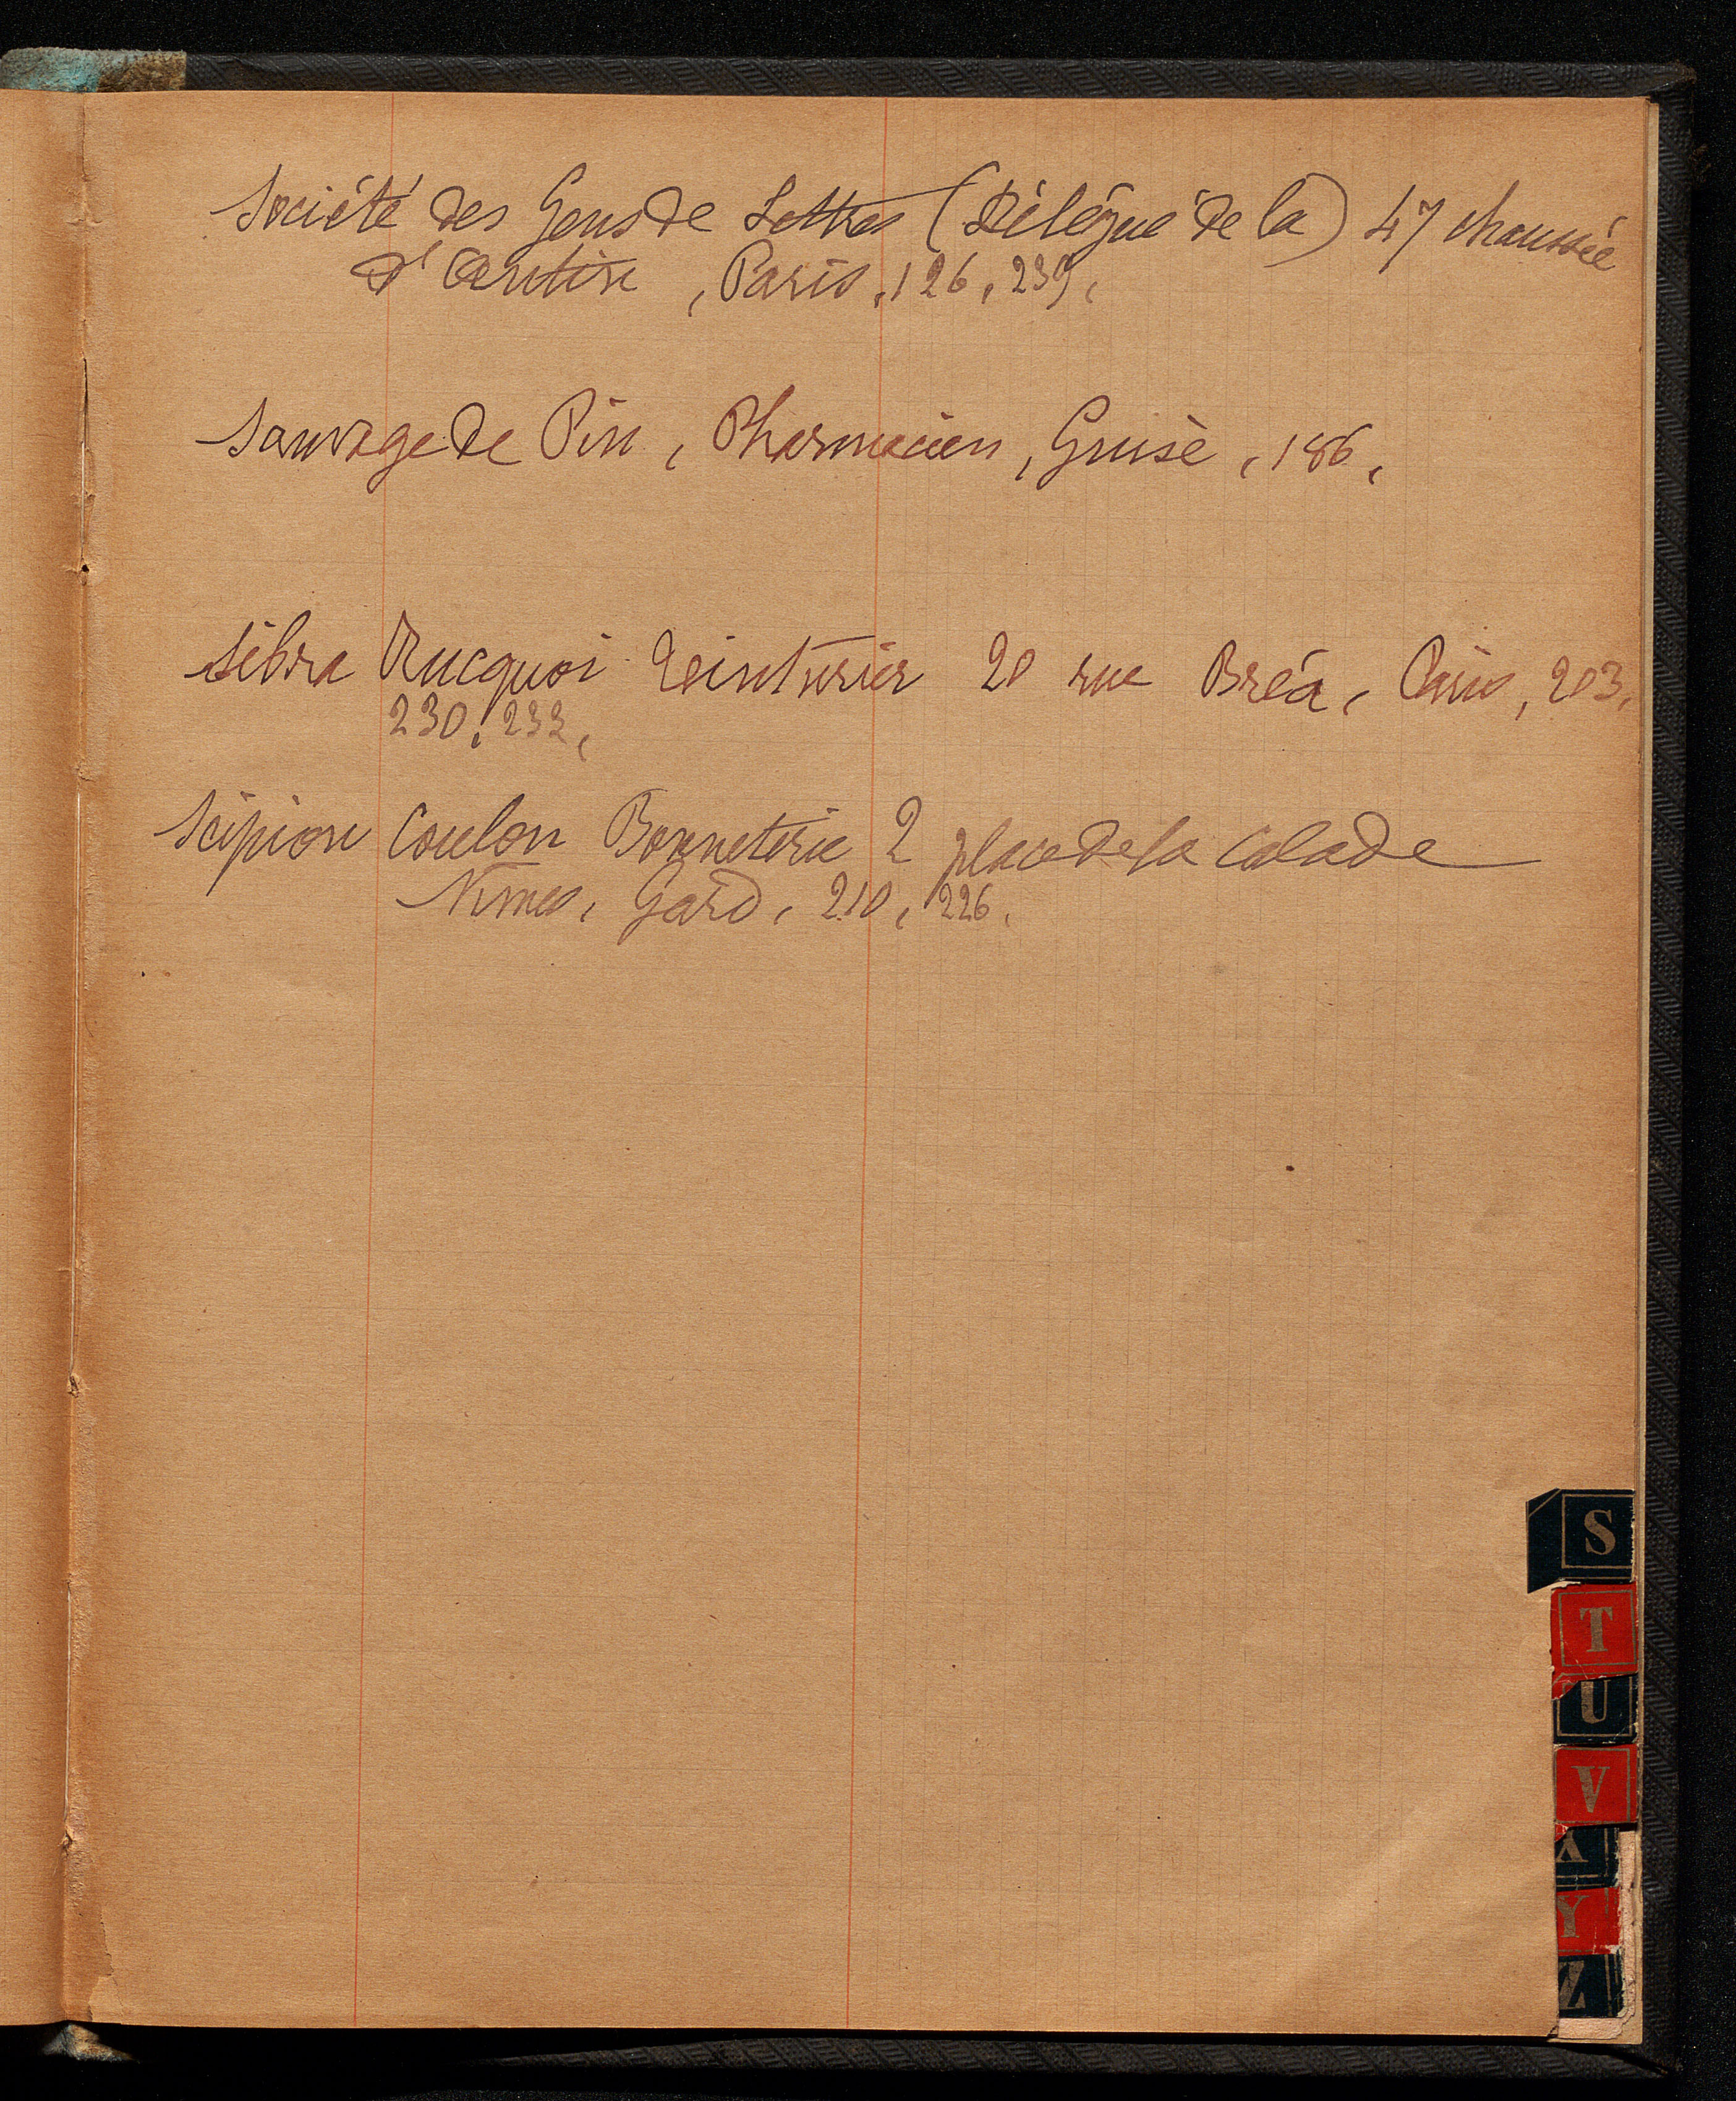 Société des Gens de Lettres (Délégué de la) 47 chaussée
d'Antin, Paris, 126, 239,
Sauvage de Pin, Pharmacien, Guise, 186,
Sibra Rucquoi Teinturier 20 rue Bréa, Paris, 203,
230, 232,
Scipion Coulon Bonneterie 2 place de la Calade
Nîmes, Gard, 210, 226,
S
T
U
V
X
Y
Z